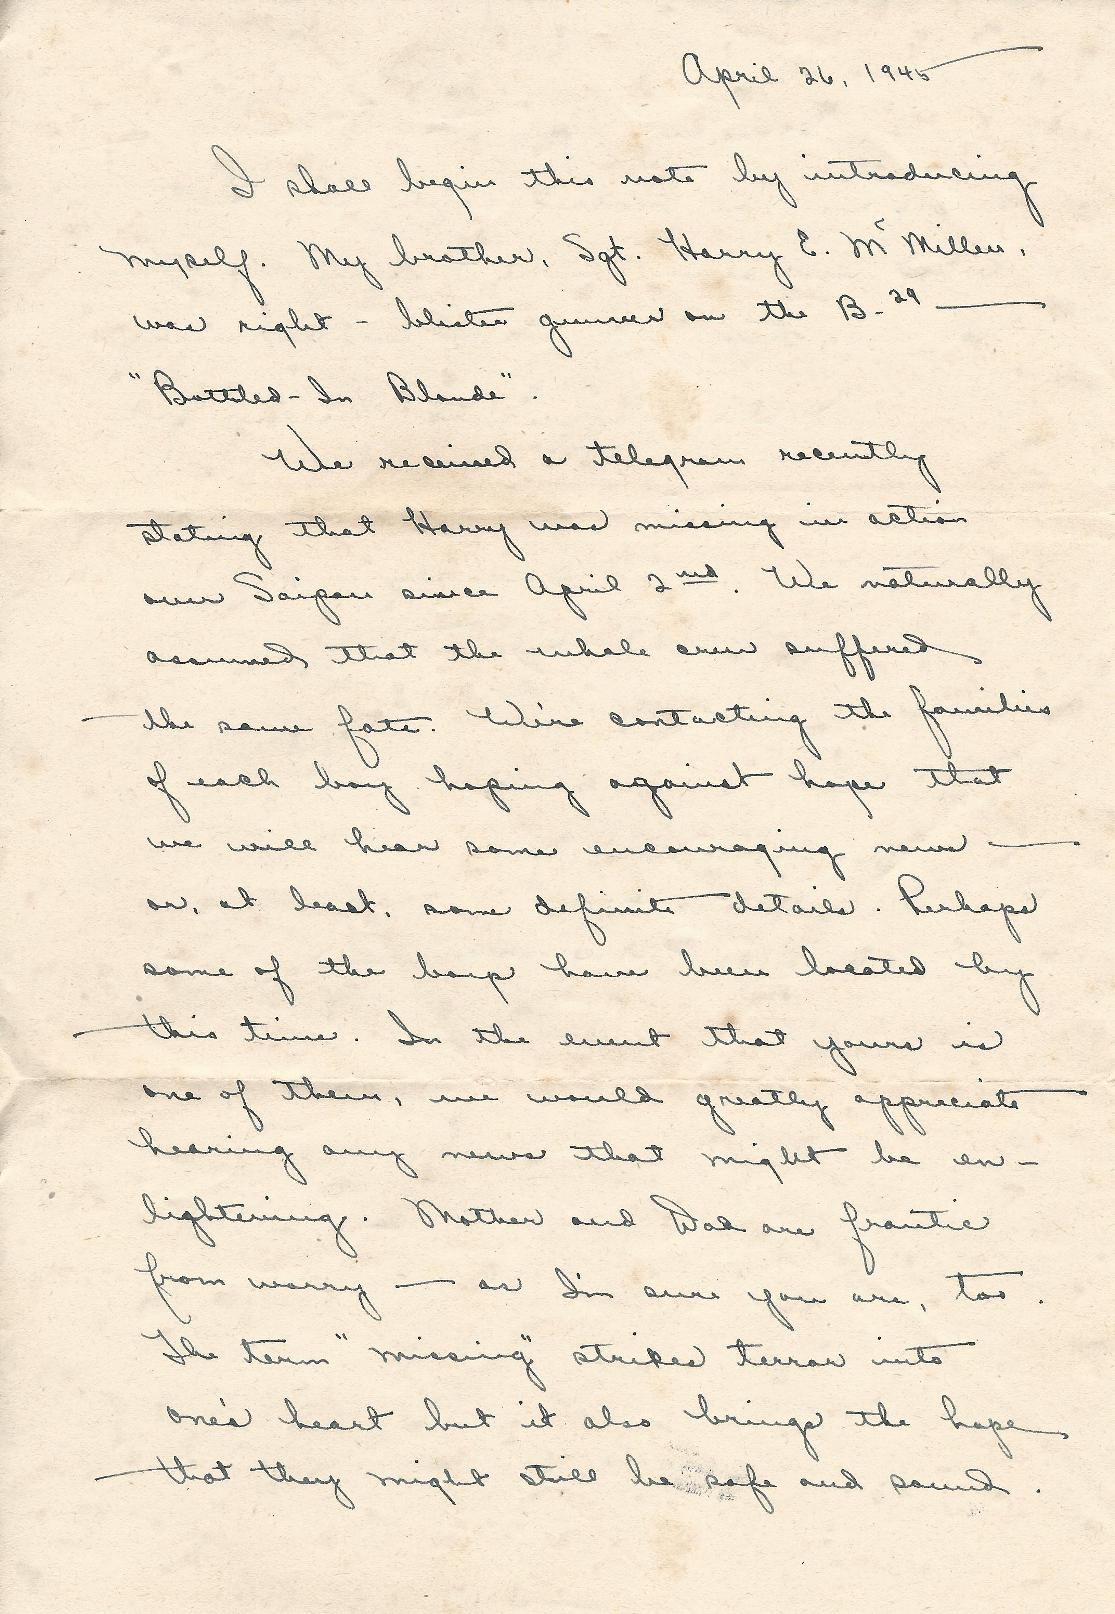 April 26, 1945
I shall begin this note by introducing
myself. My brother, Sgt. Harry E. McMillen,
was right - blister gunner on the B-29 —
"Bottled-In Blonde".
We received a telegram recently
stating that Harry was missing in action
over Saipan since April 2nd. We naturally
assumed that the whole crew suffered
the same fate. We're contacting the families
of each boy hoping against hope that
we will hear some encouraging news —
or, at least, some definite details. Perhaps
some of the boys have been located by
this time. In the event that yours is
one of them, we would greatly appreciate
hearing any news that might be en-
lightening. Mother and Dad are frantic
from worry — as I'm sure you are, too.
The term "missing" strikes terror into
one's heart but it also brings the hope
that they might still be safe and sound.